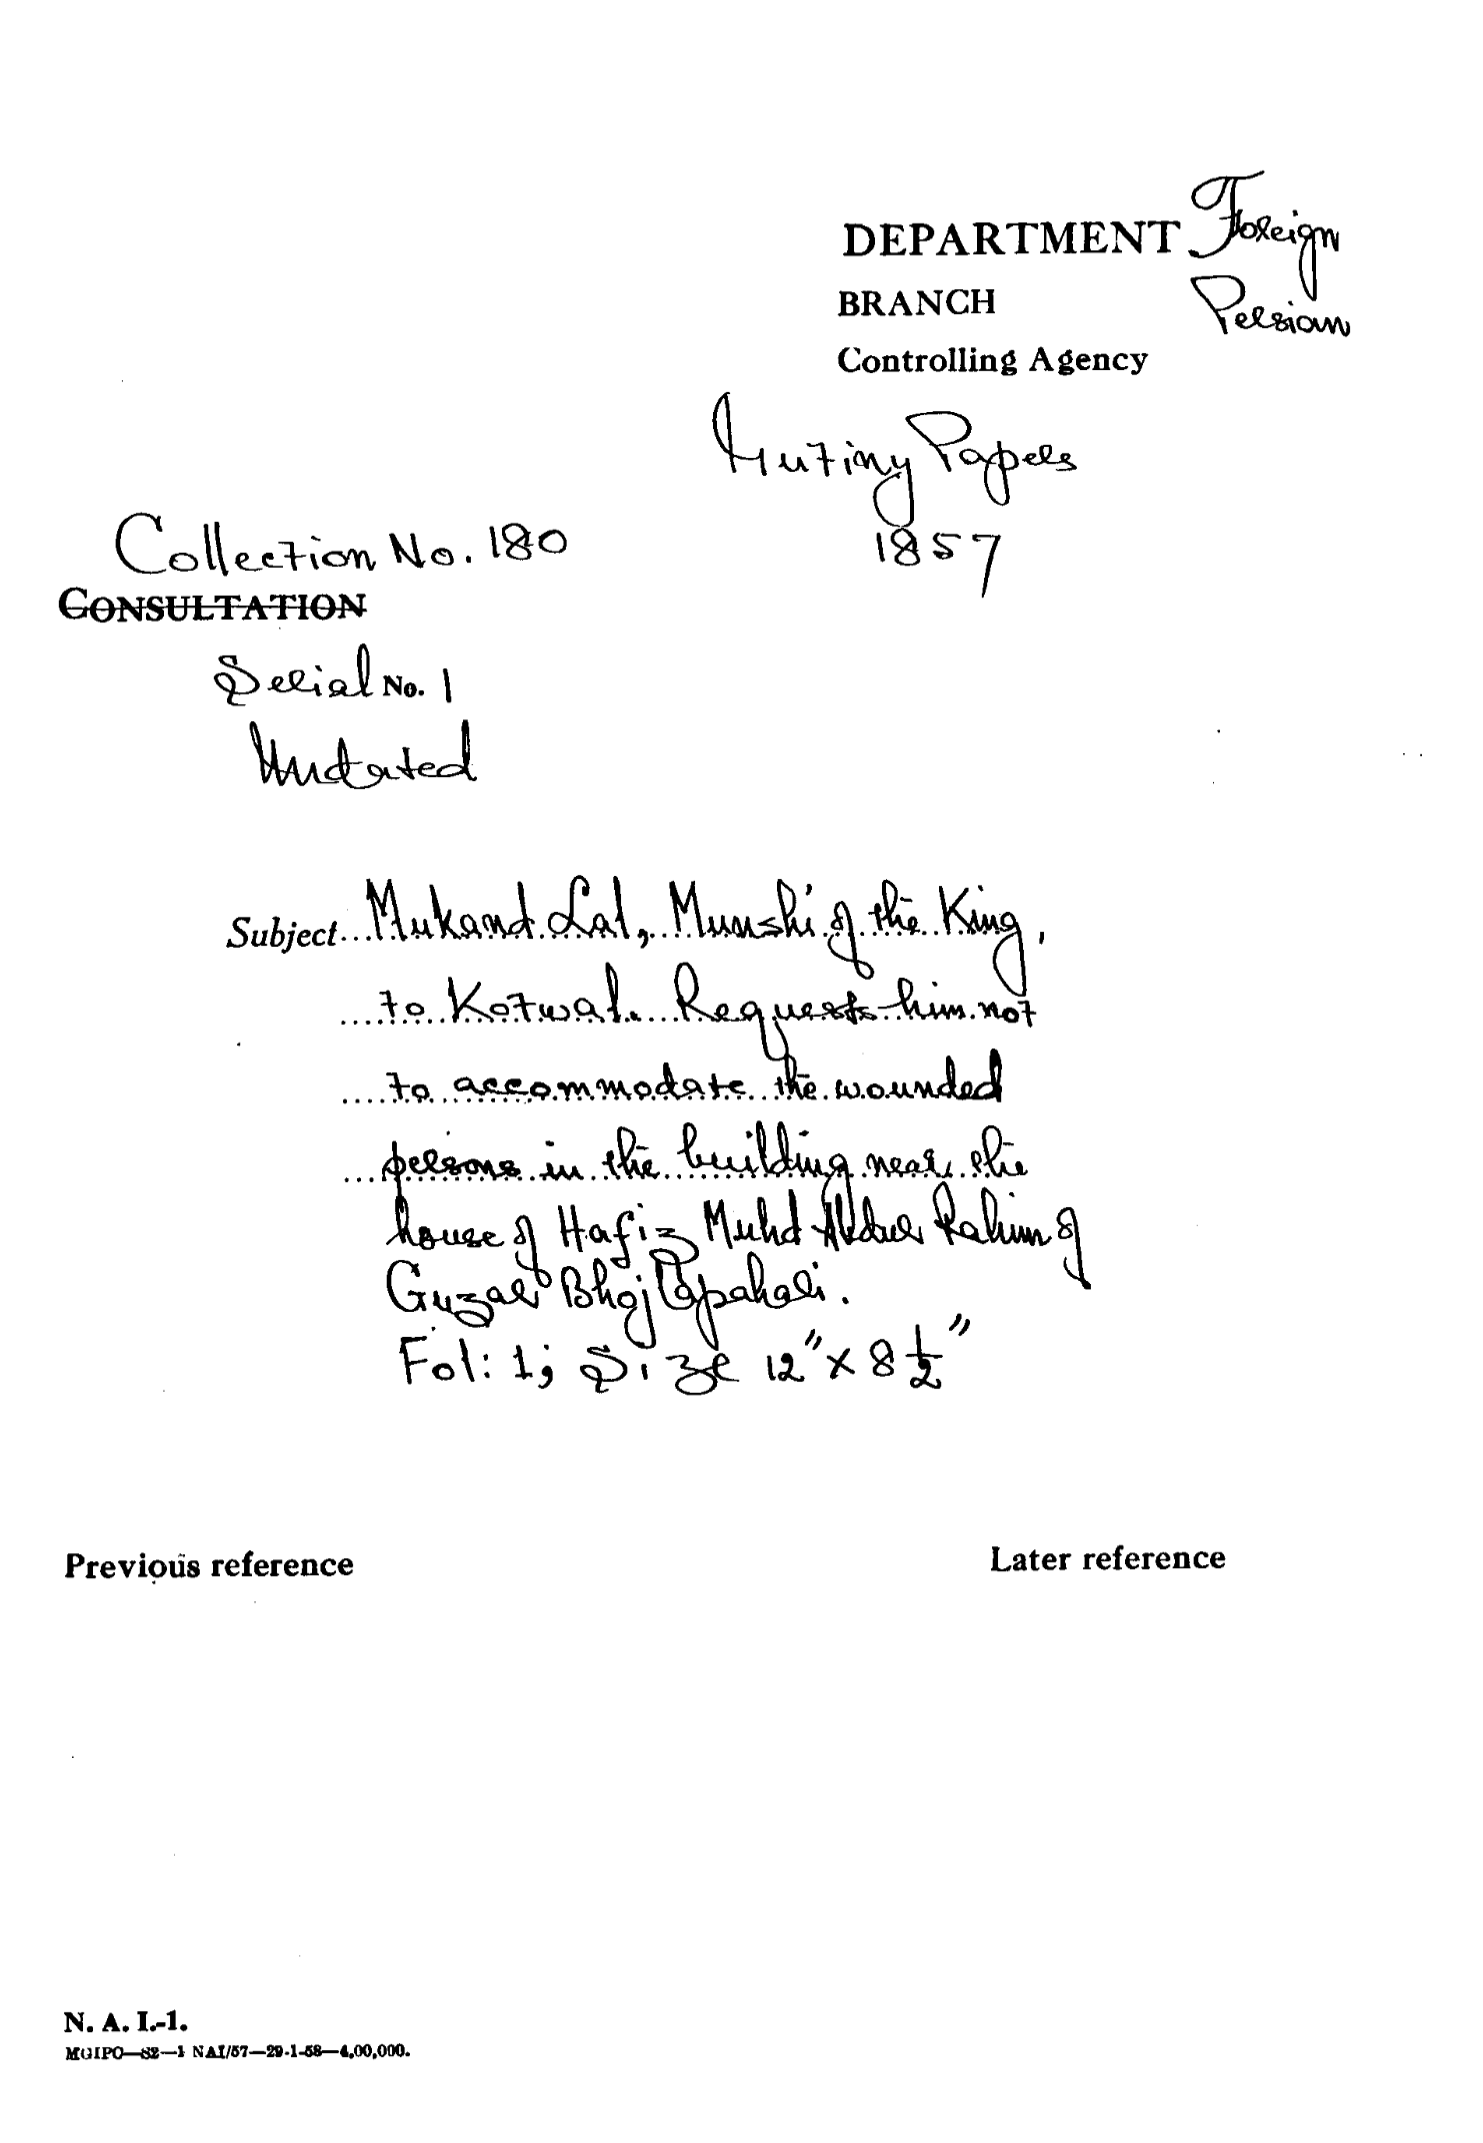 DEPARTMENT Foreign
BRANCH Persian
Controlling Agency
Mutiny Papers
1857
Collection No. 180
CONSULTATION
Serial No. 1
Undated
Subject Mukand Lal, Munshi of the King,
to Kotwal. Requests him not
to accommodate the wounded
persons in the building near the
house of Hafiz Muhd Abdur Rahim of
Guzar Bhoj
Fol: 1; Size 12" x 8 1/2"
Previous reference Later reference
N. A. I.-1.
MGIPO—S2—1 NAI/57—29-1-58—4,00,000.